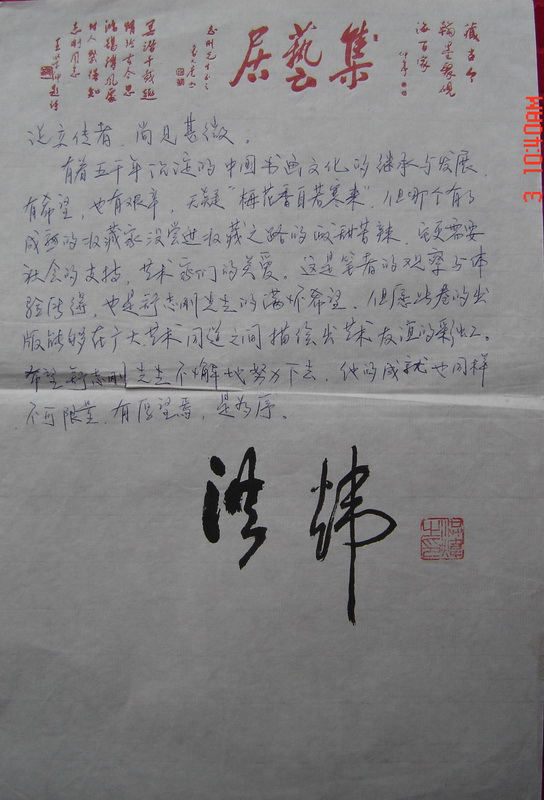 藏古今
集藝居
志刚同志
说立传者,尚见甚微。
有着五千年沉淀的中国书画文化的继承与发展,
有希望,也有艰辛,无疑“梅花香自苦寒来”,但哪个有了
成熟的收藏家没尝进收藏之路的酸甜苦辣,更需要
社会的支持,艺术家们的关爱。这是笔者的观察与体
验所得,也是舒志刚先生的满怀希望。但愿此卷的出
版能够在广大艺术同道之间描绘出艺术友谊的彩虹。
希望舒志刚先生不懈地努力下去,他的成就也同样
不可限量,有厚望焉,是为序。
洪炜
洪炜之印
3 10:40AM